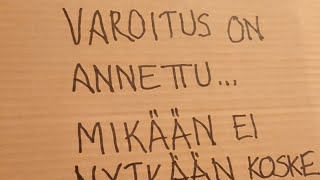 VAROITUS ON
ANNETTU...
MIKÄÄN EI
KOSKE